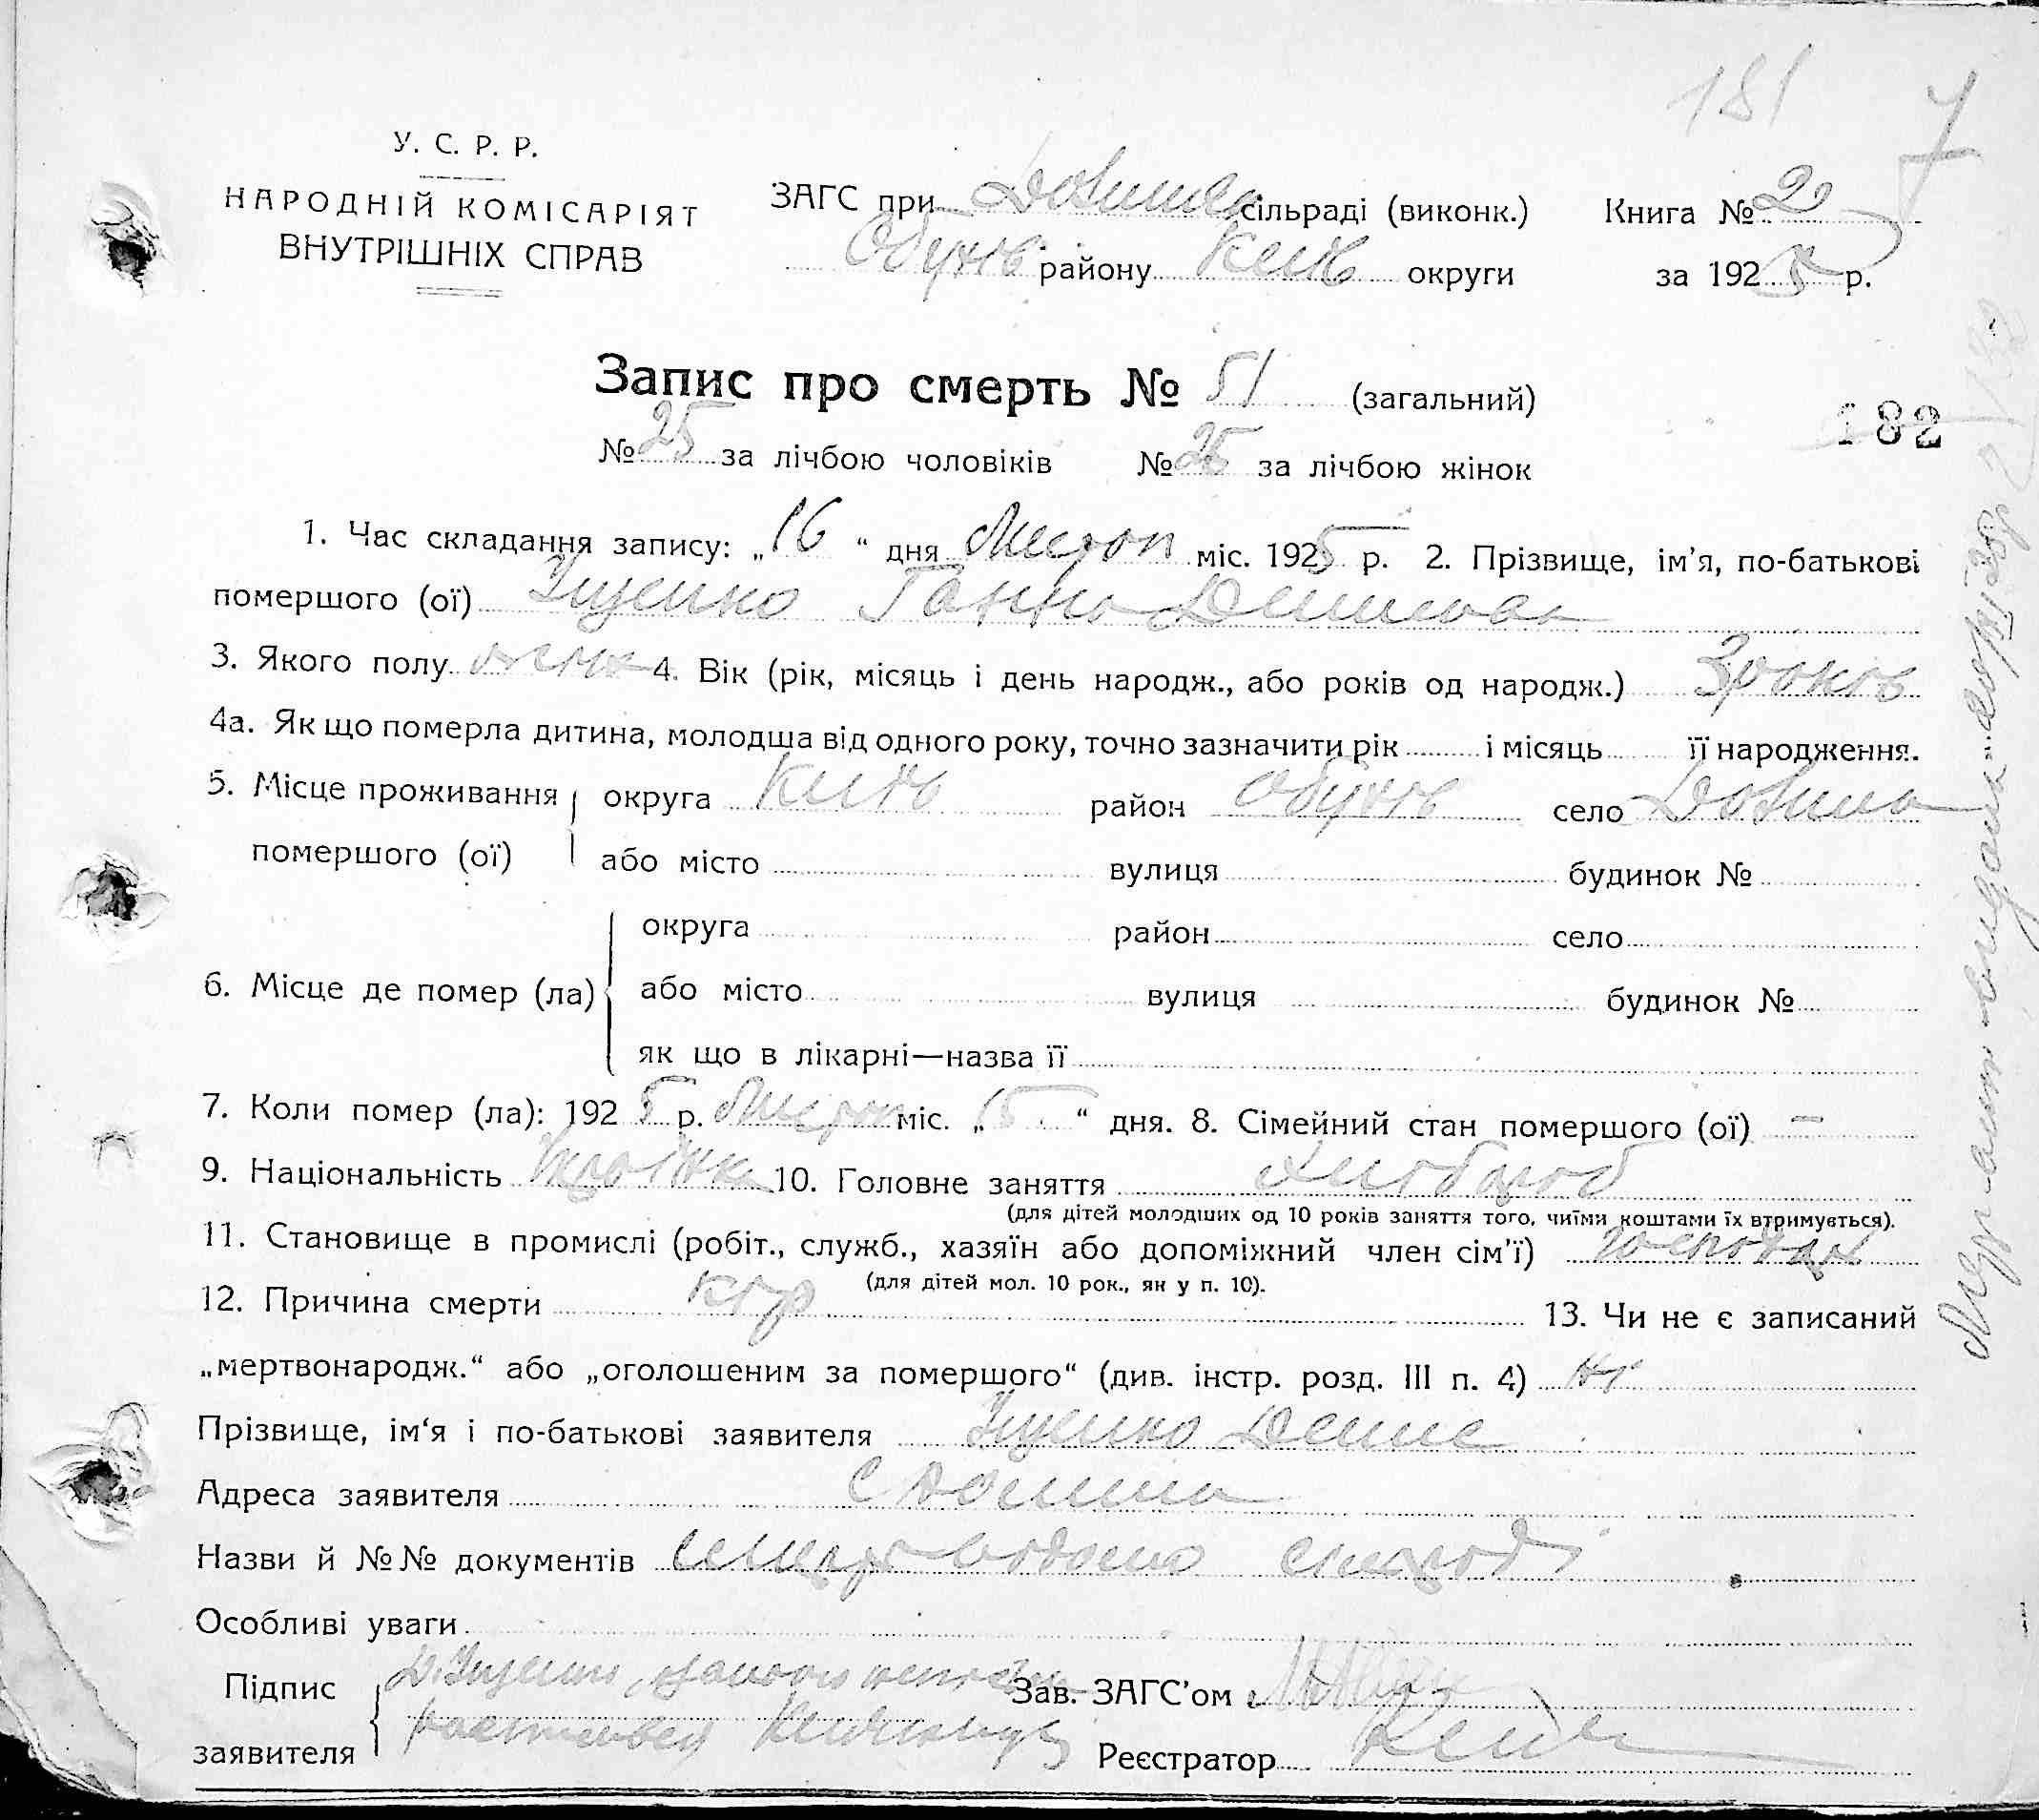 181 7
У. С. Р. Р.
НАРОДНІЙ КОМІСАРІЯТ
ВНУТРІШНІХ СПРАВ
ЗАГС при сільраді (виконк.) Книга № 2
Обухів району Київ округи за 1925 р.
Запис про смерть № 51 (загальний)
182
№ 25 за лічбою чоловіків № 26 за лічбою жінок
1. Час складання запису: „16“ дня Листоп міс. 1925 р. 2. Прізвище, ім'я, по-батькові
помершого (ої) Іщенко Ганна Денисова
3. Якого полу жіноч 4. Вік (рік, місяць і день народж., або років од народж.) 3 років
4а. Як що померла дитина, молодша від одного року, точно зазначити рік і місяць її народження.
5. Місце проживання округа Київ район Обухів село Долина
помершого (ої) або місто вулиця будинок №
округа район село
6. Місце де помер (ла) або місто вулиця будинок №
як що в лікарні—назва її
7. Коли помер (ла): 1925 р. Листоп міс. „15“ дня. 8. Сімейний стан помершого (ої) —
9. Національність Українка 10. Головне заняття Хлібороб
(для дітей молодших од 10 років заняття того, чиїми коштами їх втримується).
11. Становище в промислі (робіт., служб., хазяїн або допоміжний член сім'ї) господар
(для дітей мол. 10 рок., як у п. 10).
12. Причина смерти кір 13. Чи не є записаний
„мертвонародж.“ або „оголошеним за помершого“ (див. інстр. розд. III п. 4) ні
Прізвище, ім'я і по-батькові заявителя Іщенко Денис
Адреса заявителя с Долина
Назви й №№ документів відомо сільраді
Особливі уваги
Підпис Д. Іщенко Зав. ЗАГС'ом
заявителя Реєстратор